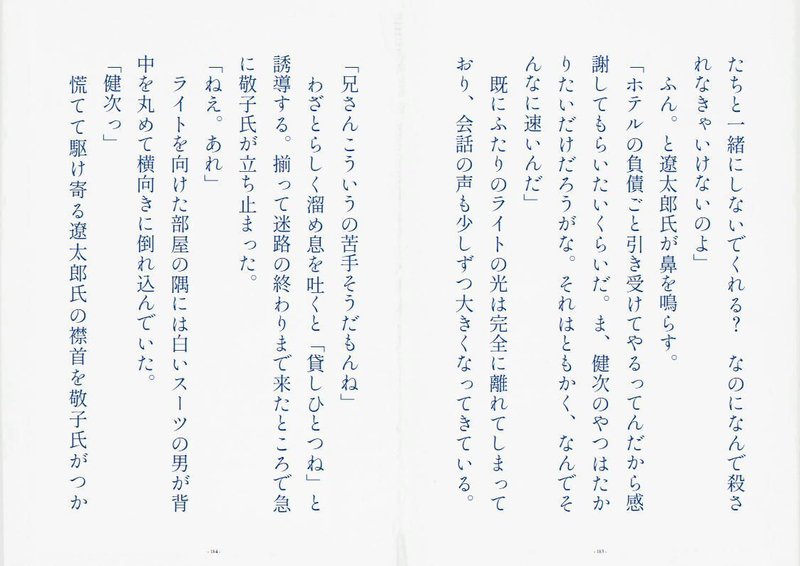 たちと一緒にしないでくれる?　なのになんで殺さ
れなきゃいけないのよ」
　ふん。と遼太郎氏が鼻を鳴らす。
「ホテルの負債ごと引き受けてやるってんだから感
謝してもらいたいくらいだ。ま、健次のやつはたか
りたいだけだろうがな。それはともかく、なんでそ
んなに速いんだ」
　既にふたりのライトの光は完全に離れてしまって
おり、会話の声も少しずつ大きくなってきている。
- 163 -
「兄さんこういうの苦手そうだもんね」
　わざとらしく溜め息を吐くと「貸しひとつね」と
誘導する。揃って迷路の終わりまで来たところで急
に敬子氏が立ち止まった。
「ねえ。あれ」
　ライトを向けた部屋の隅には白いスーツの男が背
中を丸めて横向きに倒れ込んでいた。
「健次っ」
　慌てて駆け寄る遼太郎氏の襟首を敬子氏がつか
- 164 -